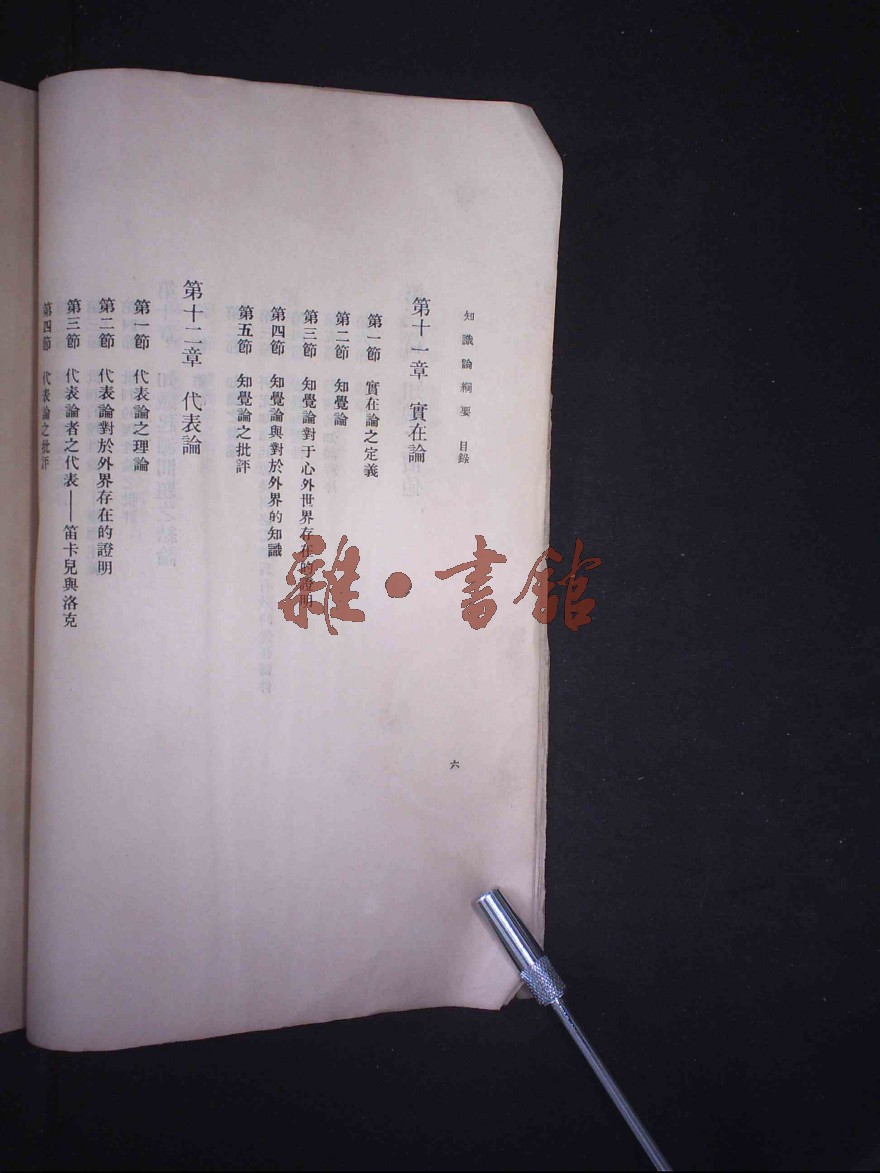 知識論綱要 目錄
第十一章 實在論
第一節 實在論之定義
第二節 知覺論
第三節 知覺論對于心外世界存在的證明
第四節 知覺論與對於外界的知識
第五節 知覺論之批評
第十二章 代表論
第一節 代表論之理論
第二節 代表論對於外界存在的證明
第三節 代表論者之代表——笛卡兒與洛克
第四節 代表論之批評
六
雜·書館